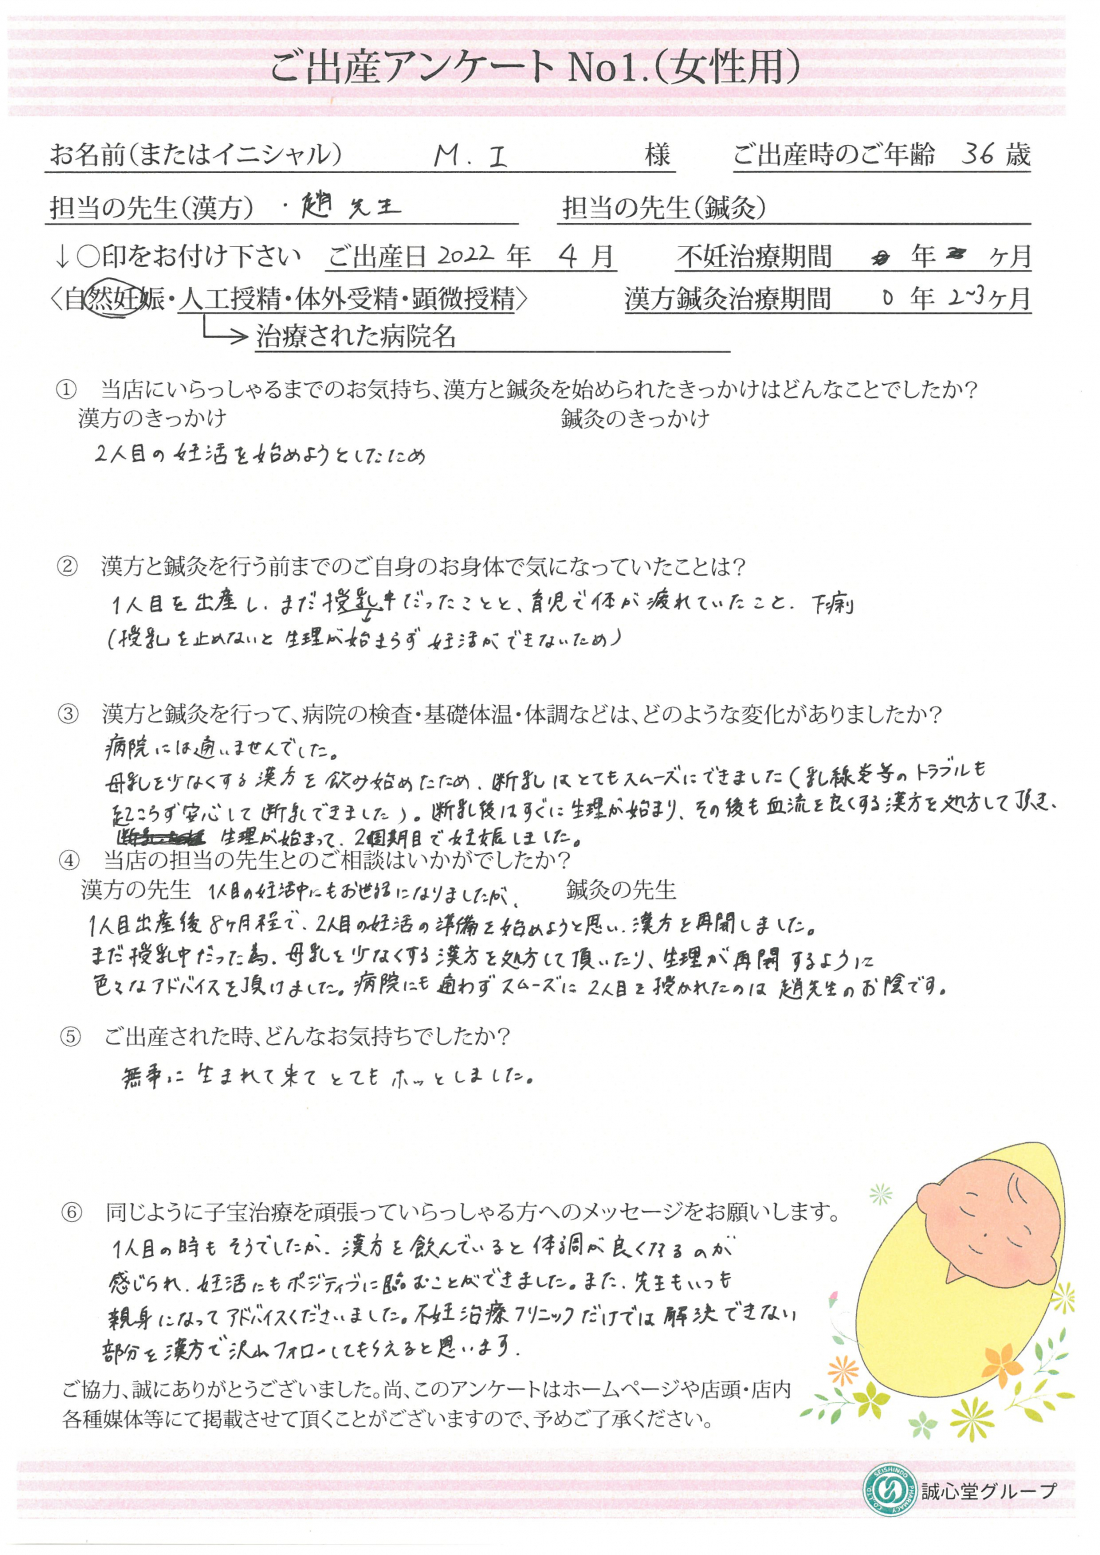 ご出産アンケート No1.（女性用）
お名前（またはイニシャル） M. I 様 ご出産時のご年齢 36 歳
担当の先生（漢方） ・趙 先生 担当の先生（鍼灸）
↓○印をお付け下さい ご出産日 2022 年 4 月 不妊治療期間 年 ヶ月
〈自然妊娠・人工授精・体外受精・顕微授精〉 漢方鍼灸治療期間 0 年 2~3ヶ月
治療された病院名
① 当店にいらっしゃるまでのお気持ち、漢方と鍼灸を始められたきっかけはどんなことでしたか？
漢方のきっかけ 鍼灸のきっかけ
2人目の妊活を始めようとしたため
② 漢方と鍼灸を行う前までのご自身のお身体で気になっていたことは？
1人目を出産し、まだ授乳中だったことと、育児で体が疲れていたこと。下痢
（授乳を止めないと生理が始まらず妊活ができないため）
③ 漢方と鍼灸を行って、病院の検査・基礎体温・体調などは、どのような変化がありましたか？
病院には通いませんでした。
母乳を少なくする漢方を飲み始めたため、断乳はとてもスムーズにできました（乳腺炎等のトラブルも
起こらず安心して断乳できました）。断乳後はすぐに生理が始まり、その後も血流を良くする漢方を処方して頂き、
生理が始まって、2個期目で妊娠しました。
④ 当店の担当の先生とのご相談はいかがでしたか？
漢方の先生 1人目の妊活中にもお世話になりましたが、 鍼灸の先生
1人目出産後8ヶ月程で、2人目の妊活の準備を始めようと思い、漢方を再開しました。
まだ授乳中だった為、母乳を少なくする漢方を処方して頂いたり、生理が再開するように
色々なアドバイスを頂けました。病院にも通わずスムーズに2人目を授かれたのは趙先生のお陰です。
⑤ ご出産された時、どんなお気持ちでしたか？
無事に生まれて来てとてもホッとしました。
⑥ 同じように子宝治療を頑張っていらっしゃる方へのメッセージをお願いします。
1人目の時もそうでしたが、漢方を飲んでいると体調が良くなるのが
感じられ、妊活にもポジティブに臨むことができました。また、先生もいつも
親身になってアドバイスくださいました。不妊治療クリニックだけでは解決できない
部分を漢方で沢山フォローしてもらえると思います。
ご協力、誠にありがとうございました。尚、このアンケートはホームページや店頭・店内
各種媒体等にて掲載させて頂くことがございますので、予めご了承ください。
SEISHINDO PHARMACY CO.,LTD. 誠心堂グループ